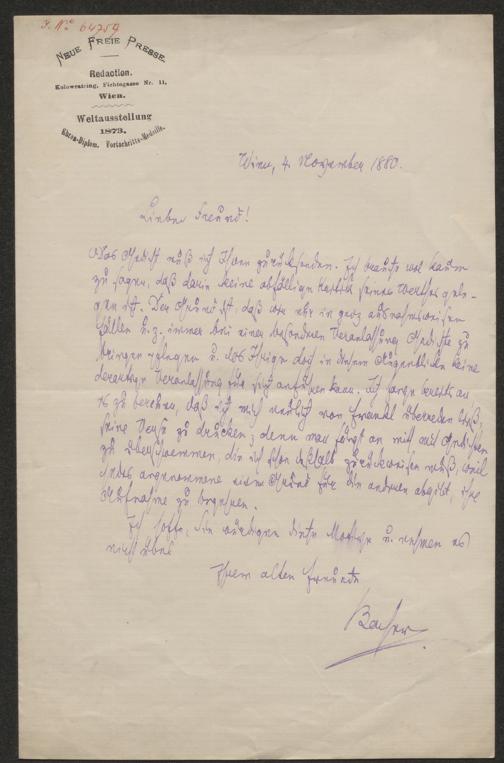 J. No 64759
NEUE FREIE PRESSE.
Redaction.
Kolowratring, Fichtegasse Nr. 11,
Wien.
Weltausstellung
1873.
Ehren-Diplom. Fortschritts-Medaille.
Wien, 4. November 1880.
Lieber Freund!
Das Gedicht muß ich Ihnen zurücksenden. Ich brauche wol kaum
zu sagen, daß darin keine abfällige Kritik seines Werthes gele-
gen ist. Der Grund ist, daß wir nur in ganz ausnahmsweisen
Fällen u. z. immer bei einer besonderen Veranlassung Gedichte zu
bringen pflegen u. das Ihrige doch in diesem Augenblicke keine
derartige Veranlassung für sich anführen kann. Ich fange bereits an
es zu bereuen, daß ich mich neulich von Frankl überreden ließ,
seine Verse zu drucken; denn man fängt an mich mit Gedichten
zu überschwemmen, die ich schon deshalb zurückweisen muß, weil
jedes angenommene einen Grund für die anderen abgibt, ihre
Aufnahme zu begehren.
Ich hoffe, Sie würdigen diese Motive u. nehmen es
nicht übel
Ihrem alten Freunde
Bacher